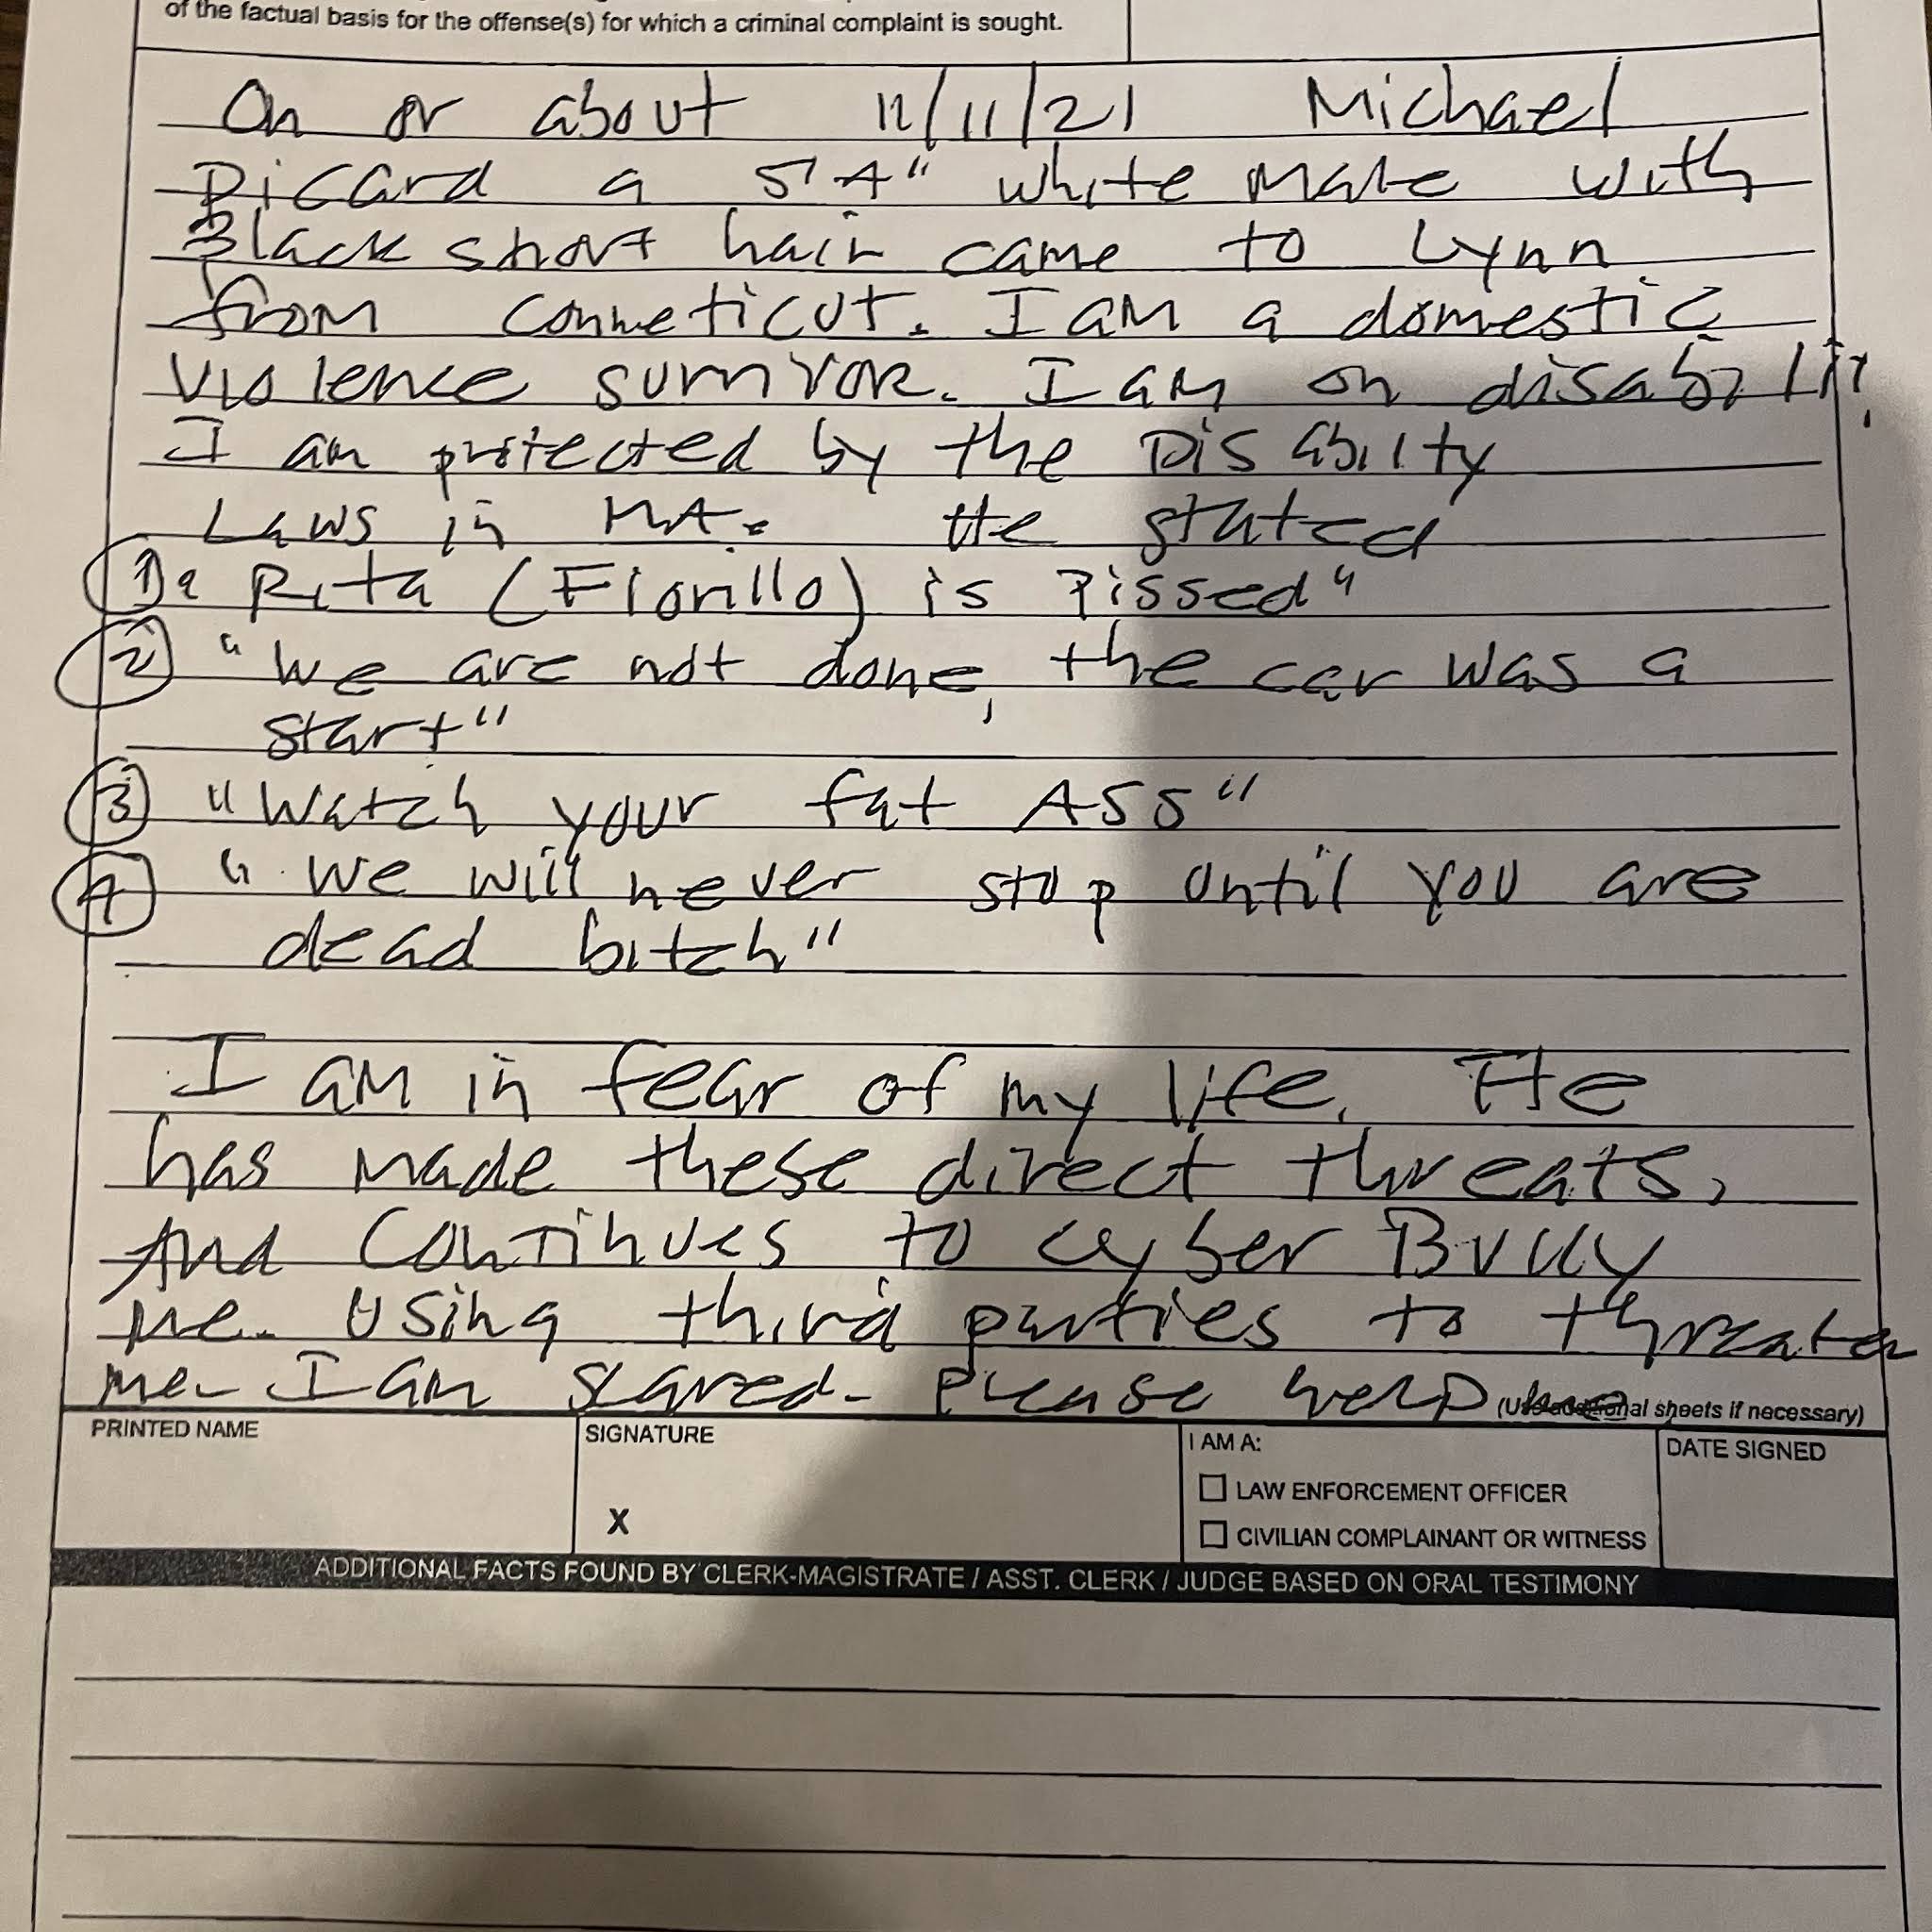 of the factual basis for the offense(s) for which a criminal complaint is sought.
On or about 12/11/21 Michael
Picard a 5'4" white male with
Black short hair came to Lynn
from Conneticut. I am a domestic
violence survivor. I am on disability,
I am protected by the Disabilty
Laws in MA. He stated
1) "Rita (Fiorillo) is Pissed"
2 "We are not done, the car was a
start"
3 "Watch your fat ASS"
4 "We will never stop until you are
dead bitch"
I am in fear of my life. He
has made these direct threats,
And Continues to cyber Bully
me. Using third parties to threaten
me. I am scared. Please help
(Use additional sheets if necessary)
PRINTED NAME
SIGNATURE
X
I AM A:
LAW ENFORCEMENT OFFICER
CIVILIAN COMPLAINANT OR WITNESS
DATE SIGNED
ADDITIONAL FACTS FOUND BY CLERK-MAGISTRATE / ASST. CLERK / JUDGE BASED ON ORAL TESTIMONY